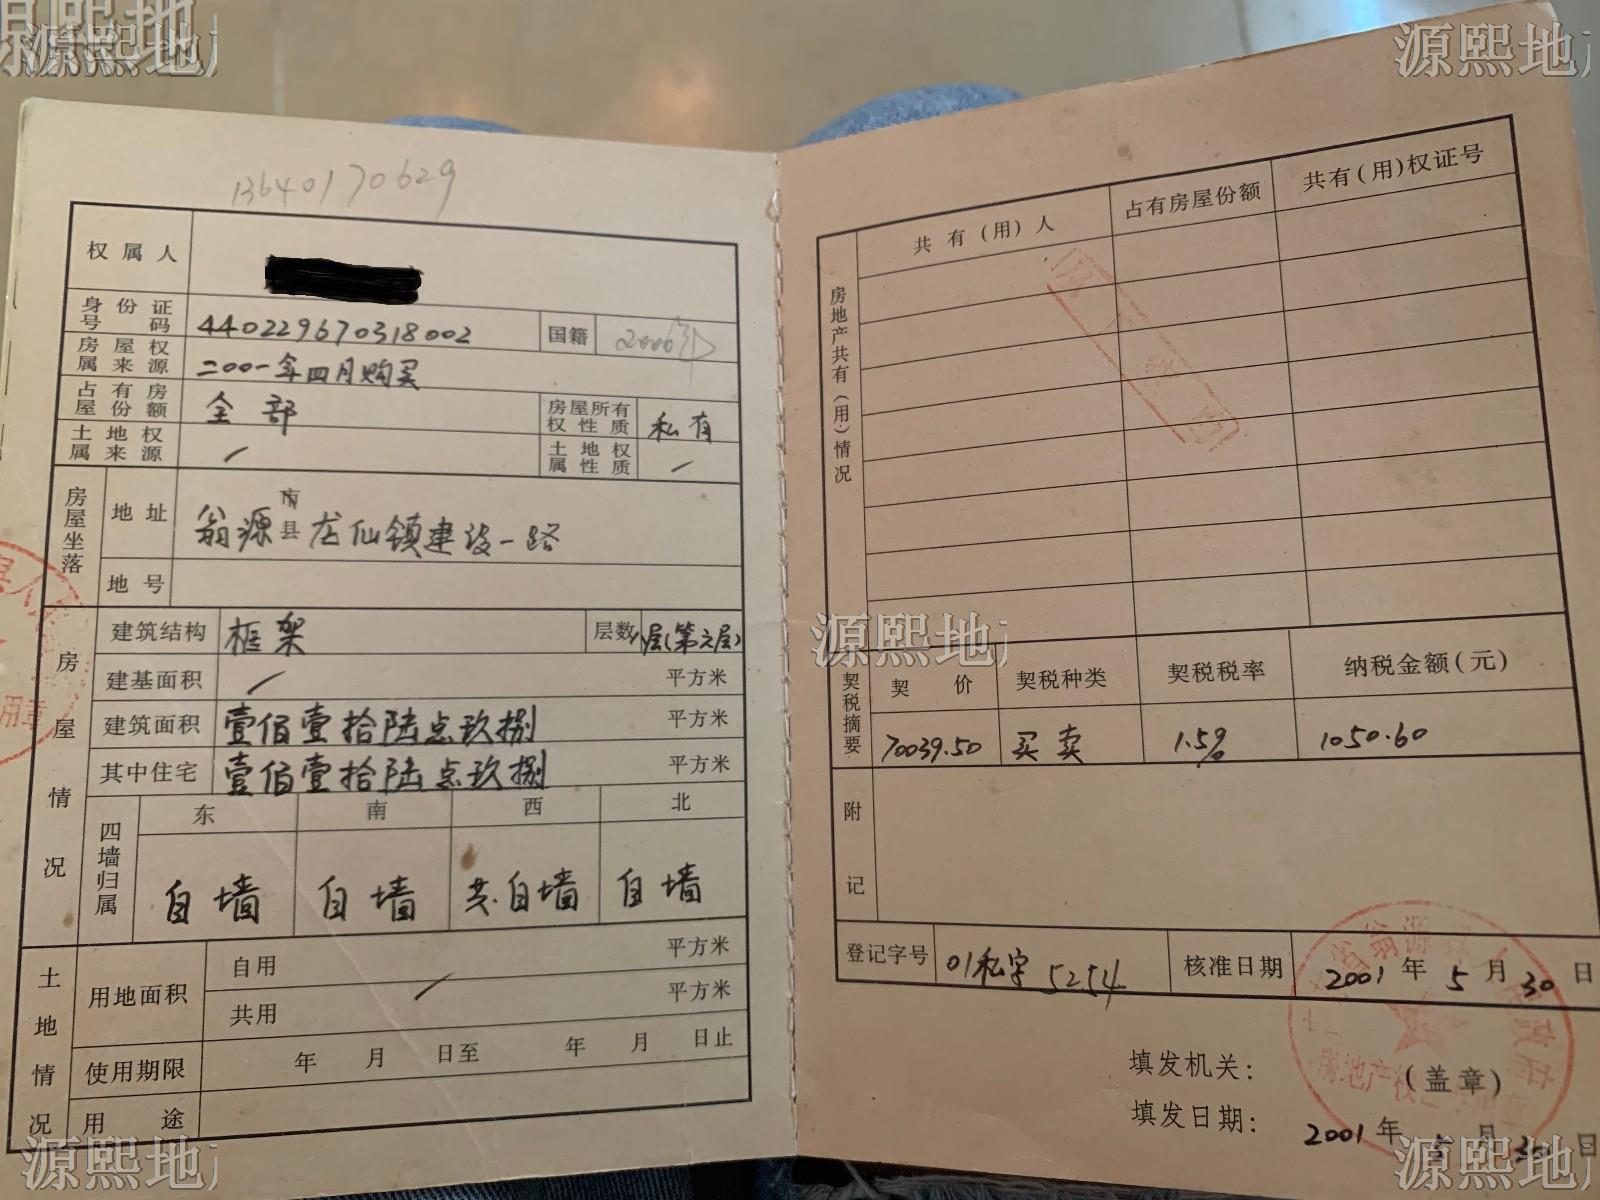 源熙地
源熙地
13640170629
权属人
身份证号码 440229670318002 国籍 2006年
房屋权属来源 二00一年四月购买
占有房屋份额 全部 房屋所有权性质 私有
土地权属来源 / 土地权属性质 /
房屋坐落 地址 翁源市县龙仙镇建设一路
地号
房屋情况 建筑结构 框架 层数 层(第之层)
建基面积 / 平方米
建筑面积 壹佰壹拾陆点玖捌 平方米
其中住宅 壹佰壹拾陆点玖捌 平方米
四墙归属 东 南 西 北
自墙 自墙 共.自墙 自墙
土地情况 用地面积 自用 平方米
/
共用 平方米
使用期限 年 月 日至 年 月 日止
用途
源熙地
房地产共有(用)情况 共有(用)人 占有房屋份额 共有(用)权证号
源熙地
契税摘要 契价 契税种类 契税税率 纳税金额(元)
70039.50 买卖 1.5% 1050.60
附记
登记字号 01私字5254 核准日期 2001年5月30日
填发机关: (盖章)
填发日期: 2001年5月30日
源熙地
用章
房地产权